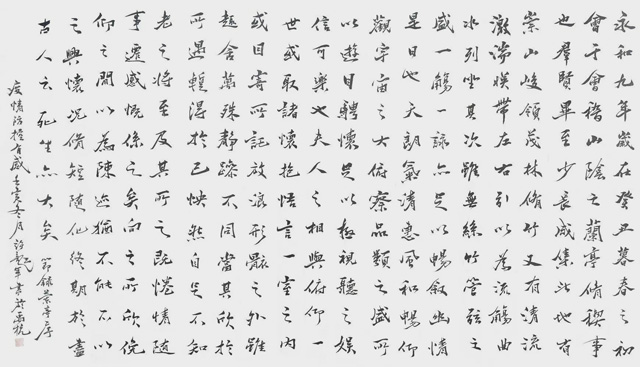 永和九年歲在癸丑暮春之初
會于會稽山陰之蘭亭脩稧事
也群賢畢至少長咸集此地有
崇山峻領茂林脩竹又有清流
激湍暎帶左右引以為流觴曲
水列坐其次雖無絲竹管弦之
盛一觴一詠亦足以暢敘幽情
是日也天朗氣清惠風和暢仰
觀宇宙之大俯察品類之盛所
以遊目騁懷足以極視聽之娛
信可樂也夫人之相與俯仰一
世或取諸懷抱悟言一室之內
或因寄所託放浪形骸之外雖
趣舍萬殊靜躁不同當其欣於
所遇暫得於己怏然自足不知
老之將至及其所之既惓情隨
事遷感慨係之矣向之所欣俛
仰之間以為陳迹猶不能不以
之興懷況脩短隨化終期於盡
古人云死生亦大矣 節錄蘭亭序
疫情防控有感壬寅冬月許軍書於禹杭